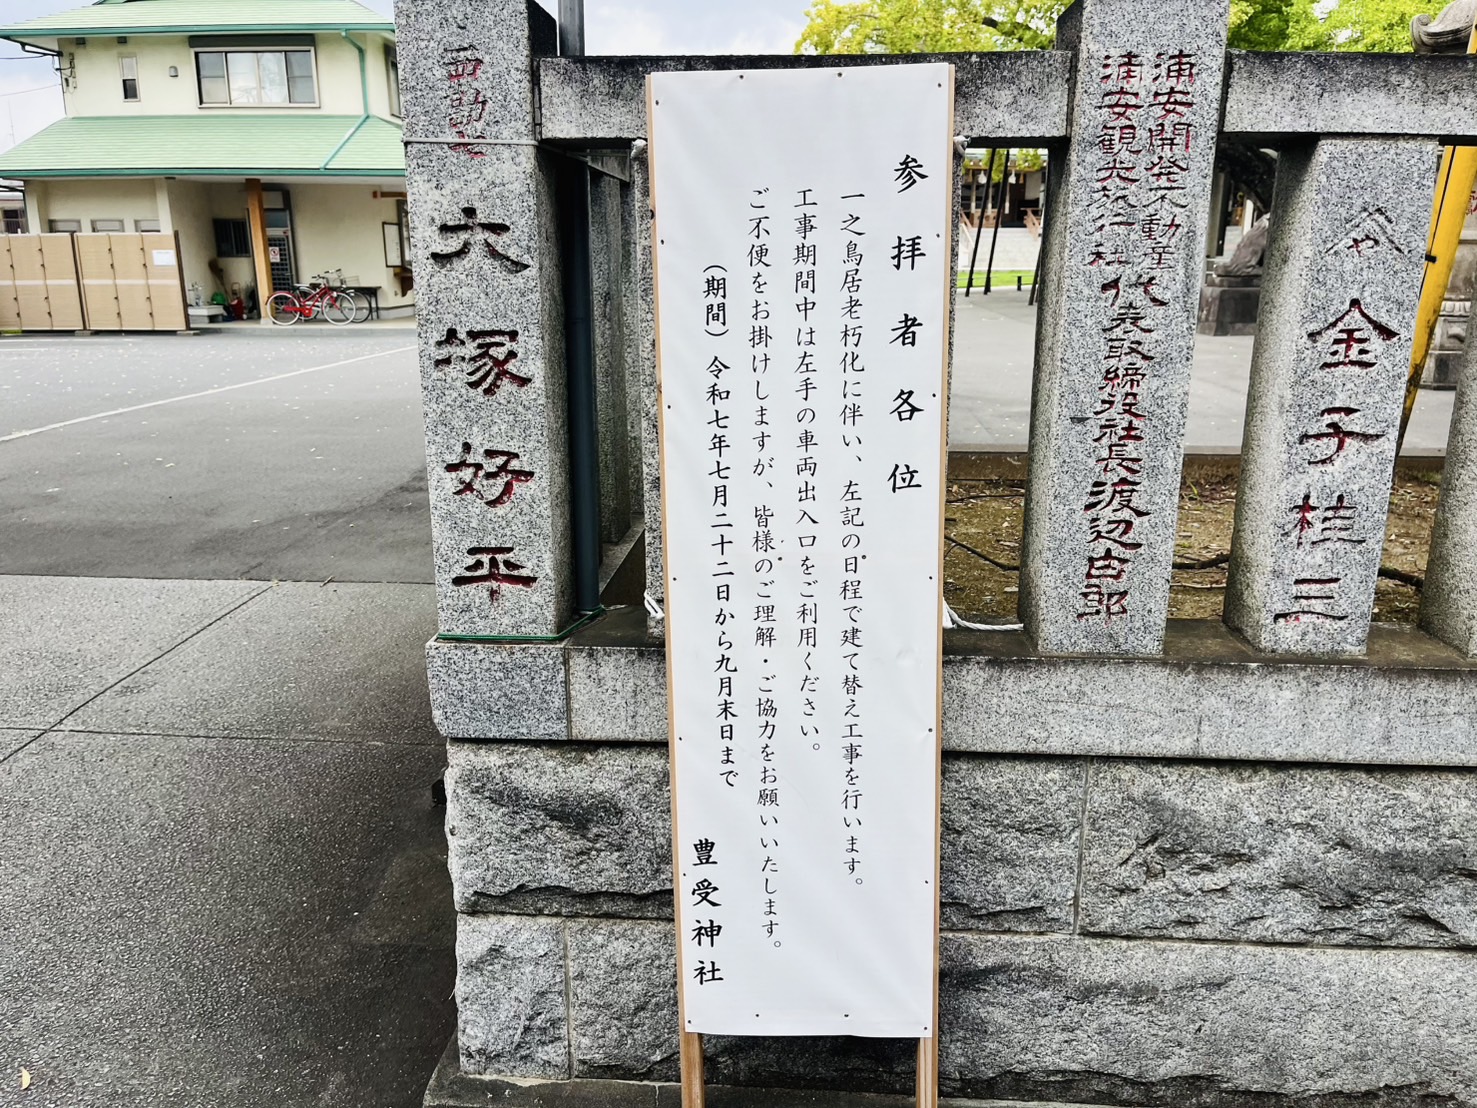 参拝者各位
一之鳥居老朽化に伴い、左記の日程で建て替え工事を行います。
工事期間中は左手の車両出入口をご利用ください。
ご不便をお掛けしますが、皆様のご理解・ご協力をお願いいたします。
(期間) 令和七年七月二十二日から九月末日まで
豊受神社
金子桂三
浦安開発不動産
浦安観光旅行社
代表取締役社長渡辺吉郎
大塚好平